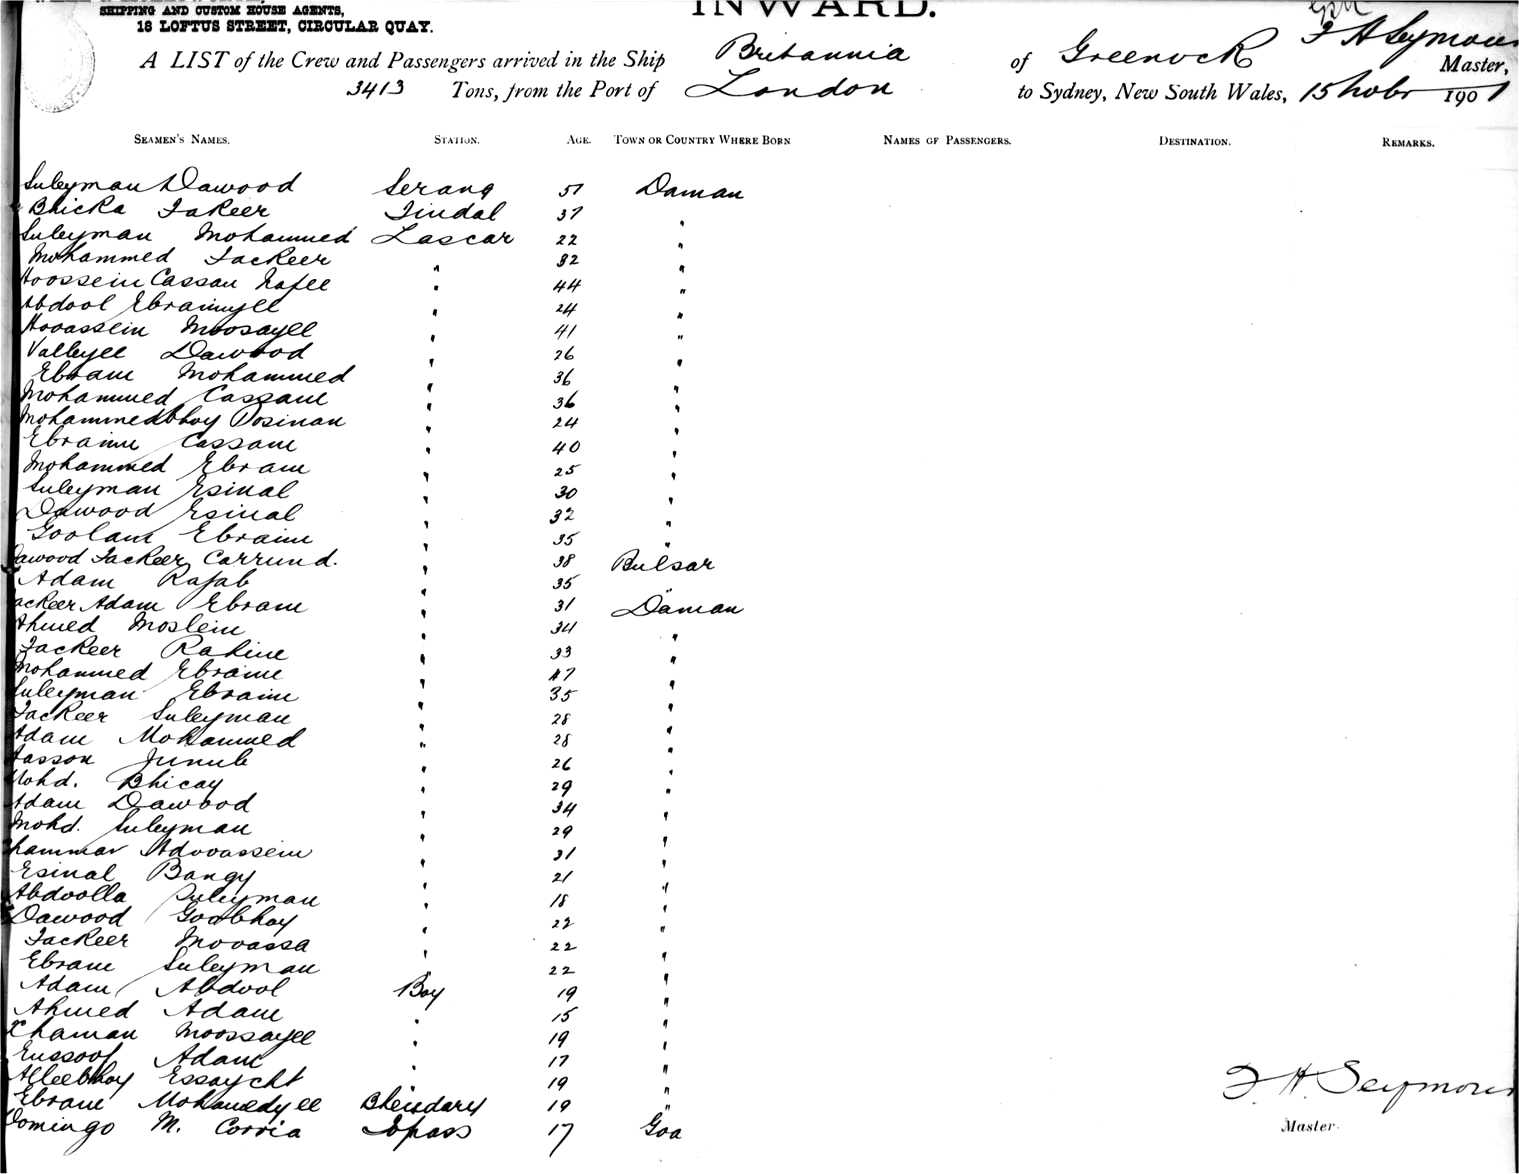 SHIPPING AND CUSTOM HOUSE AGENTS,
18 LOFTUS STREET, CIRCULAR QUAY.
INWARD.
A LIST of the Crew and Passengers arrived in the Ship Britannia of Greenock F H Seymour Master,
3413 Tons, from the Port of London to Sydney, New South Wales, 15 Novbr 1901
SEAMEN'S NAMES. STATION. AGE. TOWN OR COUNTRY WHERE BORN NAMES OF PASSENGERS. DESTINATION. REMARKS.
Suleyman Dawood Serang 51 Daman
Bhicka Fakeer Tindal 37 "
Suleyman Mohammed Lascar 22 "
Mohammed Fackeer " 32 "
Hoossein Cassam " 44 "
Abdool Ebraimjee " 24 "
Hooassein Moosajee " 41 "
Valleyee Dawood " 26 "
Ebram Mohammed " 36 "
Mohammed Cassam " 36 "
Mohammedbhoy " 24 "
Ebraim Cassam " 40 "
Mohammed Ebram " 25 "
Suleyman Esinal " 30 "
Dawood Esinal " 32 "
Goolam Ebraim " 35 "
Dawood Fackeer Carrund. " 38 Bulsar
Adam Rajab " 35 "
Fackeer Adam Ebram " 31 Daman
Ahmed Moslein " 34 "
Fackeer Rahim " 33 "
Mohammed Ebraim " 47 "
Suleyman Ebraim " 35 "
Fackeer Suleyman " 28 "
Adam Mohammed " 28 "
Hasson " 26 "
Mohd. Bhicay " 29 "
Adam Dawood " 34 "
Mohd. Suleyman " 29 "
Advoassein " 31 "
Esinal Bangy " 21 "
Abdoolla Suleyman " 18 "
Dawood Goolbhoy " 22 "
Fackeer Movassa " 22 "
Ebram Suleyman " 22 "
Adam Abdool Boy 19 "
Ahmed Adam " 15 "
Moossajee " 19 "
Eussoof Adam " 17 "
Alleebhoy " 19 "
Ebram Mohamedyee 19 "
Domingo M. Corria Topass 17 Goa
F. H. Seymour
Master.